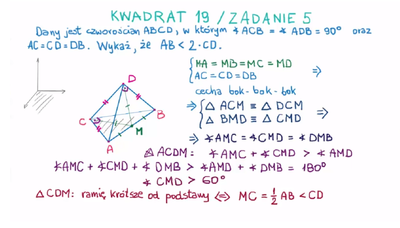 KWADRAT 19 / ZADANIE 5
Dany jest czworościan ABCD, w którym ∢ ACB = ∢ ADB = 90° oraz
AC = CD = DB. Wykaż, że AB < 2·CD.
D
C
B
A
M
MA = MB = MC = MD
AC = CD = DB
⇒
cecha bok-bok-bok
△ ACM ≡ △ DCM
△ BMD ≡ △ CMD
⇒
⇒ ∢AMC = ∢CMD = ∢DMB
ACDM: ∢AMC + ∢CMD > ∢AMD
∢AMC + ∢CMD + ∢DMB > ∢AMD + ∢DMB = 180°
∢ CMD > 60°
△ CDM: ramię krótsze od podstawy ⇔ MC = 1/2 AB < CD